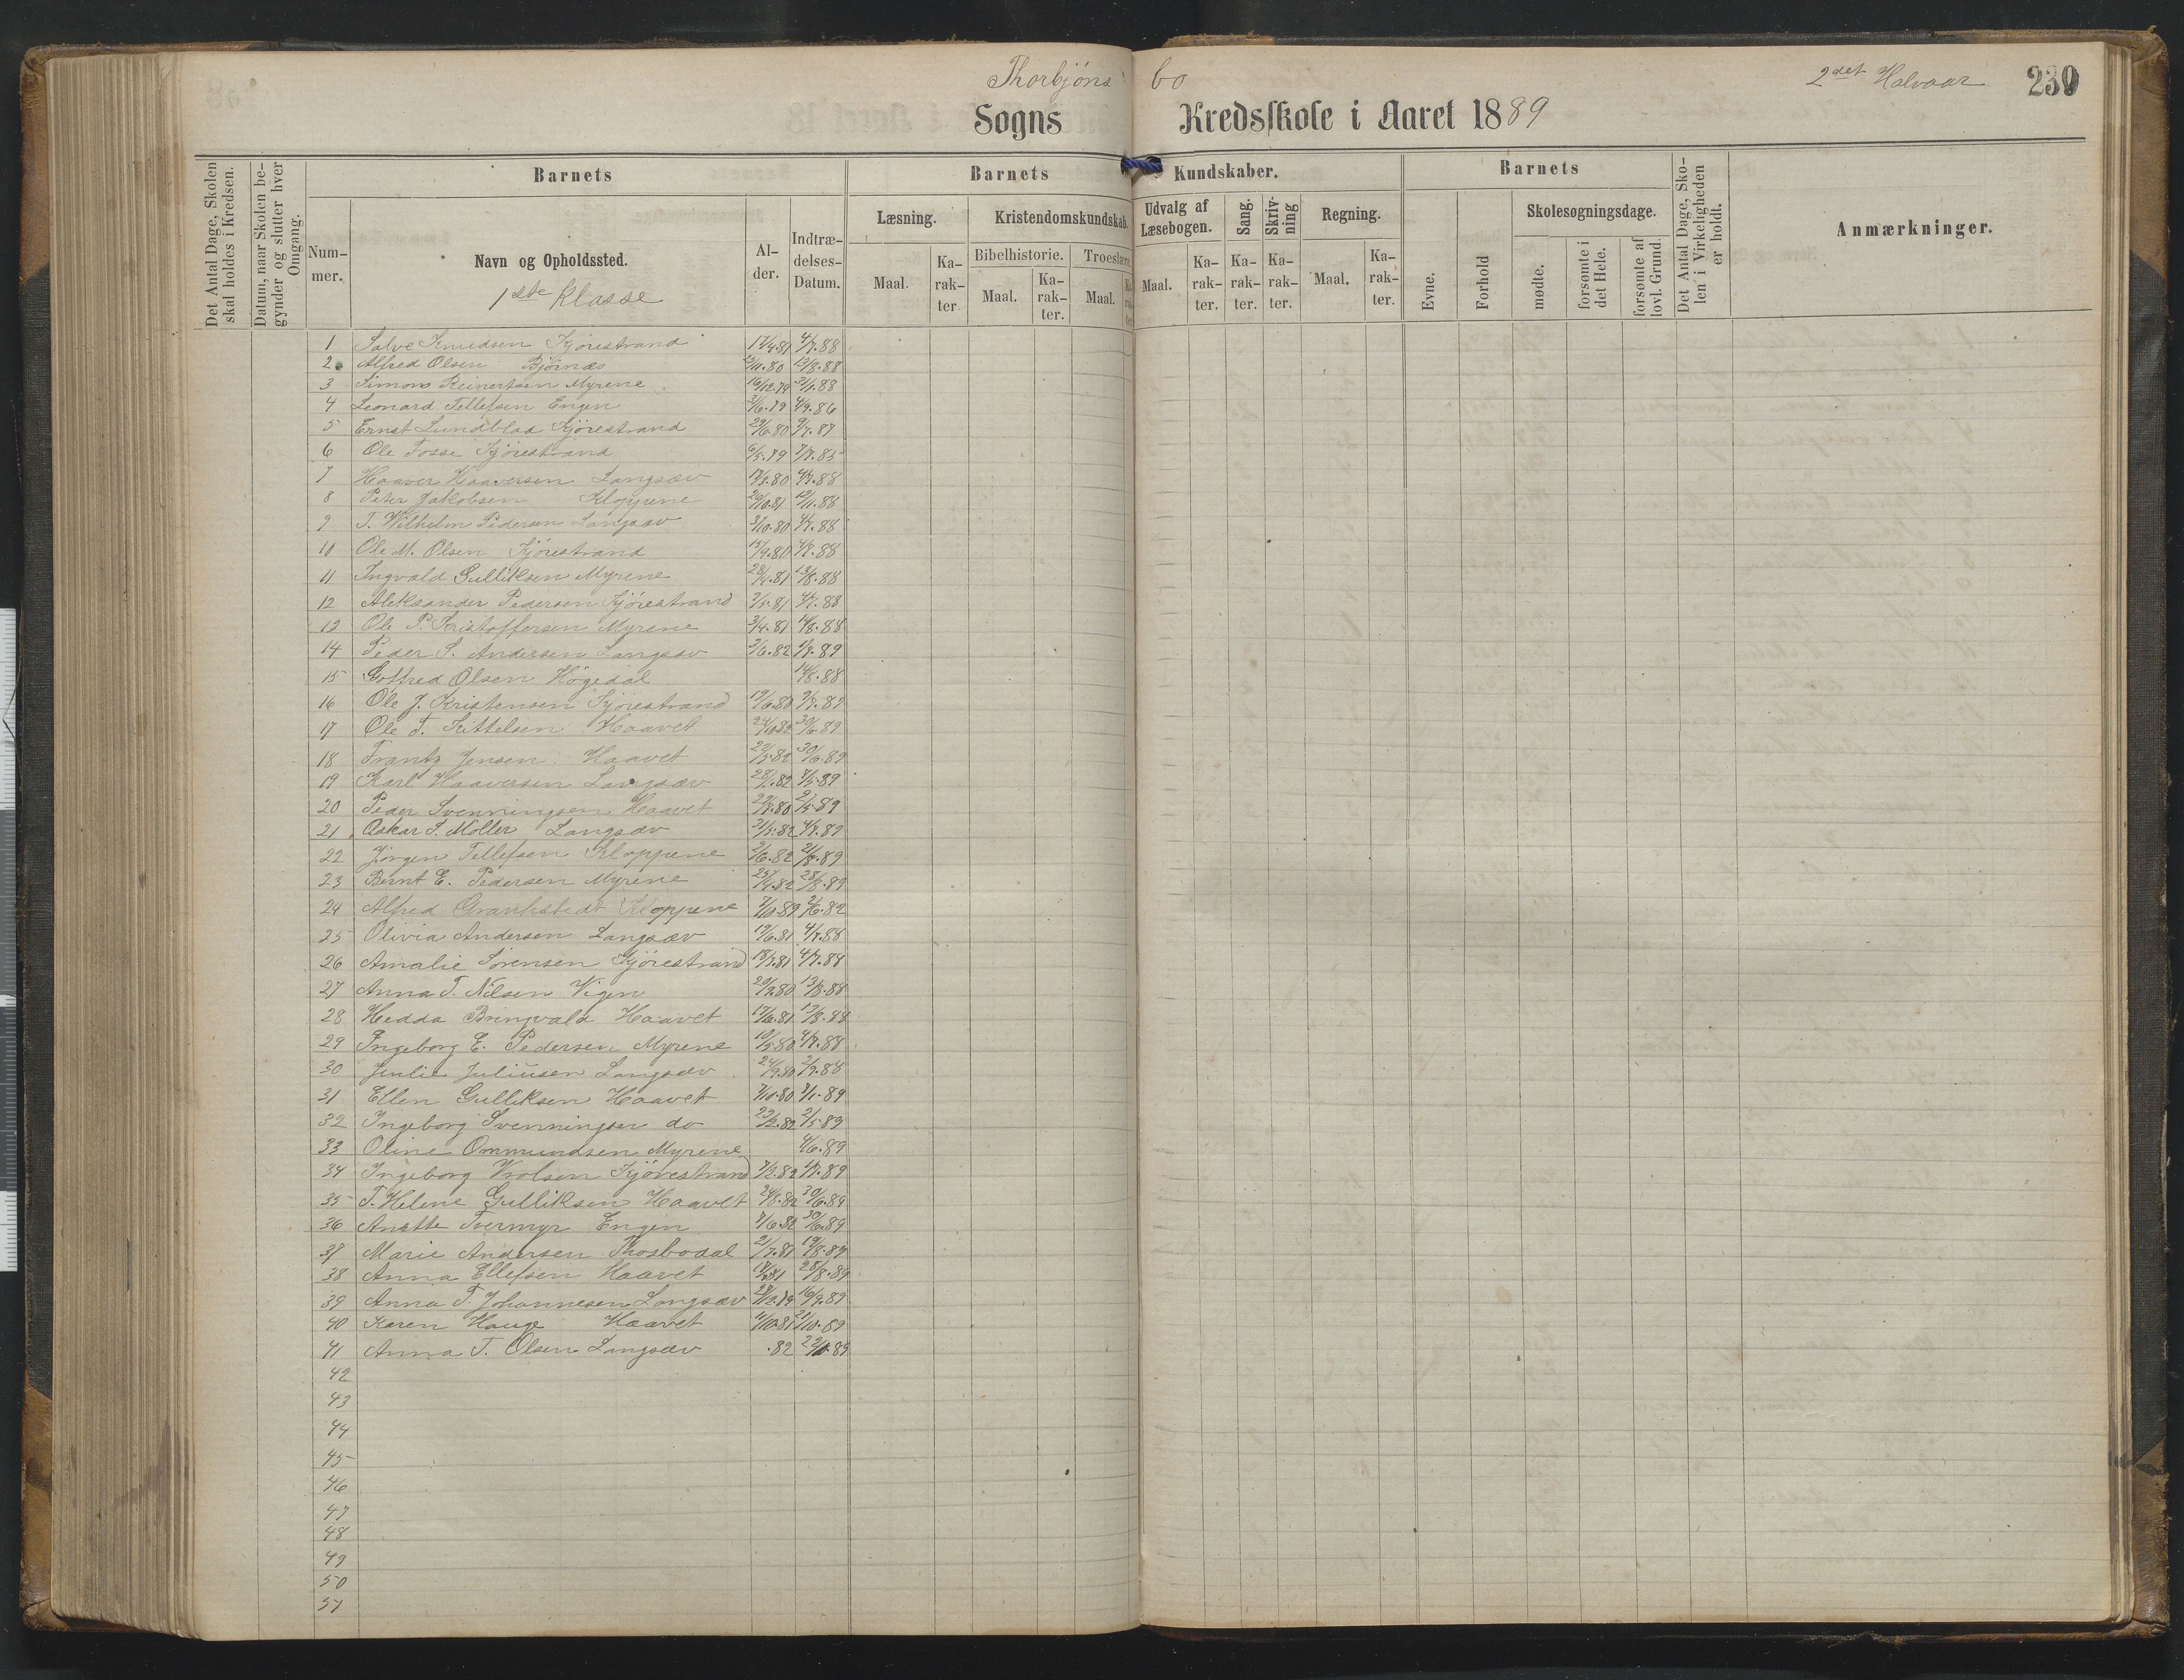 Thorbjöns bo
2det Halvaar 230
Sogns Kredsskole i Aaret 1889
Det Antal Dage, Skolen skal holdes i Kredsen.
Datum, naar Skolen begynder og slutter hver Omgang.
Barnets
Nummer.
Navn og Opholdssted.
1ste Klasse
Alder.
Indtrædelses-Datum.
Barnets Kundskaber.
Læsning.
Maal.
Karakter
Kristendomskundskab.
Bibelhistorie.
Maal.
Karakter.
Troeslære
Maal.
Udvalg af Læsebogen.
Maal.
Karakter.
Sang.
Karakter.
Skrivning
Karakter.
Regning.
Maal.
Karakter.
Barnets
Evne.
Forhold
Skolesøgningsdage.
mødte.
forsømte i det Hele.
forsømte af lovl. Grund.
Det Antal Dage, Skolen i Virkeligheden er holdt.
Anmærkninger.
1 Salve Knudsen Kjörestrand 17/4.81 4/7.88
2 Alfred Olsen Björnæs 23/11.80 13/8.88
3 Simon Reinertsen Myrene 16/12.79 2/1.88
4 Leonard Tellefsen Engen 3/6.79 4/9.86
5 Ernst Lundblad Kjörestrand 29/6.80 9/7.87
6 Ole Fosse Kjörestrand 6/5.79 7/7.85
7 Haaver Haaversen Langsæv 17/3.80 4/7.88
8 Peter Jakobsen Kloppene 26/10.81 12/11.88
9 T. Wilhelm Pedersen Langsæv 3/10.80 4/7.88
10 Ole M. Olsen Kjörestrand 15/9.80 4/7.88
11 Ingvald Gulliksen Myrene 28/4.81 13/8.88
12 Aleksander Pedersen Kjörestrand 2/5.81 4/7.88
13 Ole P. Kristoffersen Myrene 3/4.81 14/8.88
14 Peder S. Andersen Langsæv 3/6.82 1/7.89
15 Gotfred Olsen Högedal 14/8.88
16 Ole J. Kristensen Kjörestrand 19/6.80 2/7.87
17 Ole T. Kittelsen Haavet 24/10.82 30/6.89
18 Frantz Jensen Haavet 22/5.82 30/6.89
19 Karl Haaversen Langsæv 28/1.82 7/5.89
20 Peder Svenningsen Haavet 29/7.80 2/5.89
21 Oskar S. Möller Langsæv 31/5.82 4/7.89
22 Jörgen Tellefsen Kloppene 2/6.82 21/8.89
23 Bernt E. Pedersen Myrene 25/4.82 28/8.89
24 Alfred Grankstedt Kloppene 7/10.89 2/6.82
25 Olivia Andersen Langsæv 19/6.81 4/7.88
26 Amalie Sörensen Kjörestrand 18/7.81 4/7.88
27 Anna T. Nilsen Vigen 20/3.80 13/8.88
28 Hedda Bringvald Haavet 17/6.81 13/8.88
29 Ingeborg E. Pedersen Myrene 10/5.80 4/7.88
30 Julie Juliusen Langsæv 24/9.80 2/7.88
31 Ellen Gulliksen Haavet 7/10.80 7/1.89
32 Ingeborg Svenningsen do 23/2.82 2/5.89
33 Oline Ommundsen Myrene 4/6.89
34 Ingeborg Vrolsen Kjörestrand 7/2.82 4/7.89
35 T. Helene Gulliksen Haavet 24/8.82 30/6.89
36 Anette Tvermyr Engen 7/6.82 30/6.89
37 Marie Andersen Thosbodal 21/7.81 19/8.89
38 Anna Ellefsen Haavet 28/8.89
39 Anna T. Johannesen Langsæv 28/12.79 16/9.89
40 Karen Hauge Haavet 4/10.81 21/10.89
41 Anna T. Olsen Langsæv .82 22/10.89
42
43
44
45
46
47
48
49
50
51